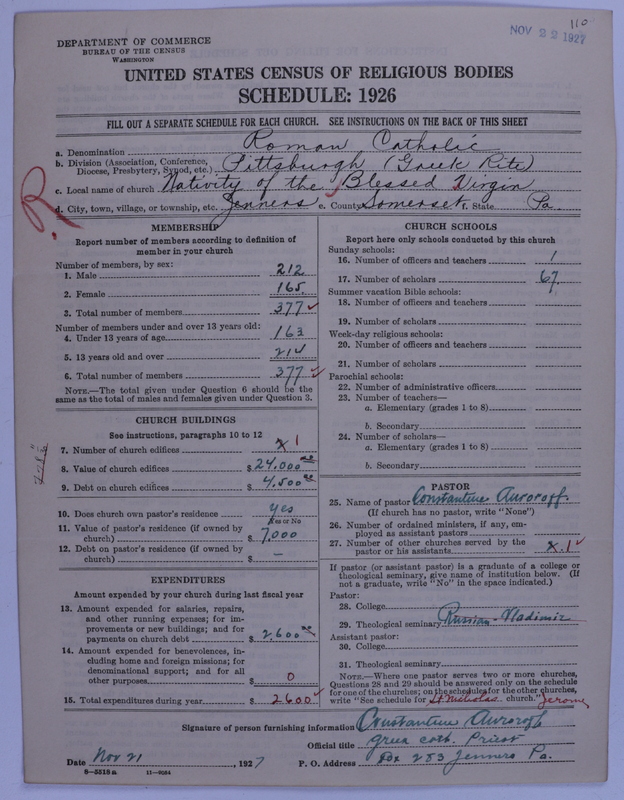 110
NOV 22 1927
DEPARTMENT OF COMMERCE
BUREAU OF THE CENSUS
WASHINGTON
UNITED STATES CENSUS OF RELIGIOUS BODIES
SCHEDULE: 1926
FILL OUT A SEPARATE SCHEDULE FOR EACH CHURCH. SEE INSTRUCTIONS ON THE BACK OF THIS SHEET
a. Denomination Roman Catholic
b. Division (Association, Conference, Diocese, Presbytery, Synod, etc.) Pittsburgh (Greek Rite)
c. Local name of church Nativity of the Blessed Virgin
d. City, town, village, or township, etc. Jenners e. County Somerset f. State Pa.
R.
MEMBERSHIP
Report number of members according to definition of
member in your church
Number of members, by sex:
1. Male 212
2. Female 165
3. Total number of members 377 ✓
Number of members under and over 13 years old:
4. Under 13 years of age 163
5. 13 years old and over 214
6. Total number of members 377 ✓
NOTE.—The total given under Question 6 should be the
same as the total of males and females given under Question 3.
CHURCH BUILDINGS
See instructions, paragraphs 10 to 12
7. Number of church edifices x 1
8. Value of church edifices $ 24,000.00
9. Debt on church edifices $ 4,500.00
10. Does church own pastor's residence yes
Yes or No
11. Value of pastor's residence (if owned by
church) $ 7,000
12. Debt on pastor's residence (if owned by
church) $ —
EXPENDITURES
Amount expended by your church during last fiscal year
13. Amount expended for salaries, repairs,
and other running expenses; for im-
provements or new buildings; and for
payments on church debt $ 2,600.00
14. Amount expended for benevolences, in-
cluding home and foreign missions; for
denominational support; and for all
other purposes $ 0
15. Total expenditures during year $ 2600 ✓
CHURCH SCHOOLS
Report here only schools conducted by this church
Sunday schools:
16. Number of officers and teachers 1
17. Number of scholars 67
Summer vacation Bible schools:
18. Number of officers and teachers
19. Number of scholars
Week-day religious schools:
20. Number of officers and teachers
21. Number of scholars
Parochial schools:
22. Number of administrative officers
23. Number of teachers—
a. Elementary (grades 1 to 8)
b. Secondary
24. Number of scholars—
a. Elementary (grades 1 to 8)
b. Secondary
PASTOR
25. Name of pastor Constantine Auroroff
(If church has no pastor, write "None")
26. Number of ordained ministers, if any, em-
ployed as assistant pastors
27. Number of other churches served by the
pastor or his assistants x 1 ✓
If pastor (or assistant pastor) is a graduate of a college or
theological seminary, give name of institution below. (If
not a graduate, write "No" in the space indicated.)
Pastor:
28. College
29. Theological seminary Russian-Vladimir
Assistant pastor:
30. College
31. Theological seminary
NOTE.—Where one pastor serves two or more churches,
Questions 28 and 29 should be answered only on the schedule
for one of the churches; on the schedules for the other churches,
write "See schedule for St Nicholas church." Jerome
Signature of person furnishing information Constantine Auroroff
Official title Greek cath. Priest
Date Nov 21, 1927 P. O. Address Box 253 Jenners Pa.
8—5518a 11—9054